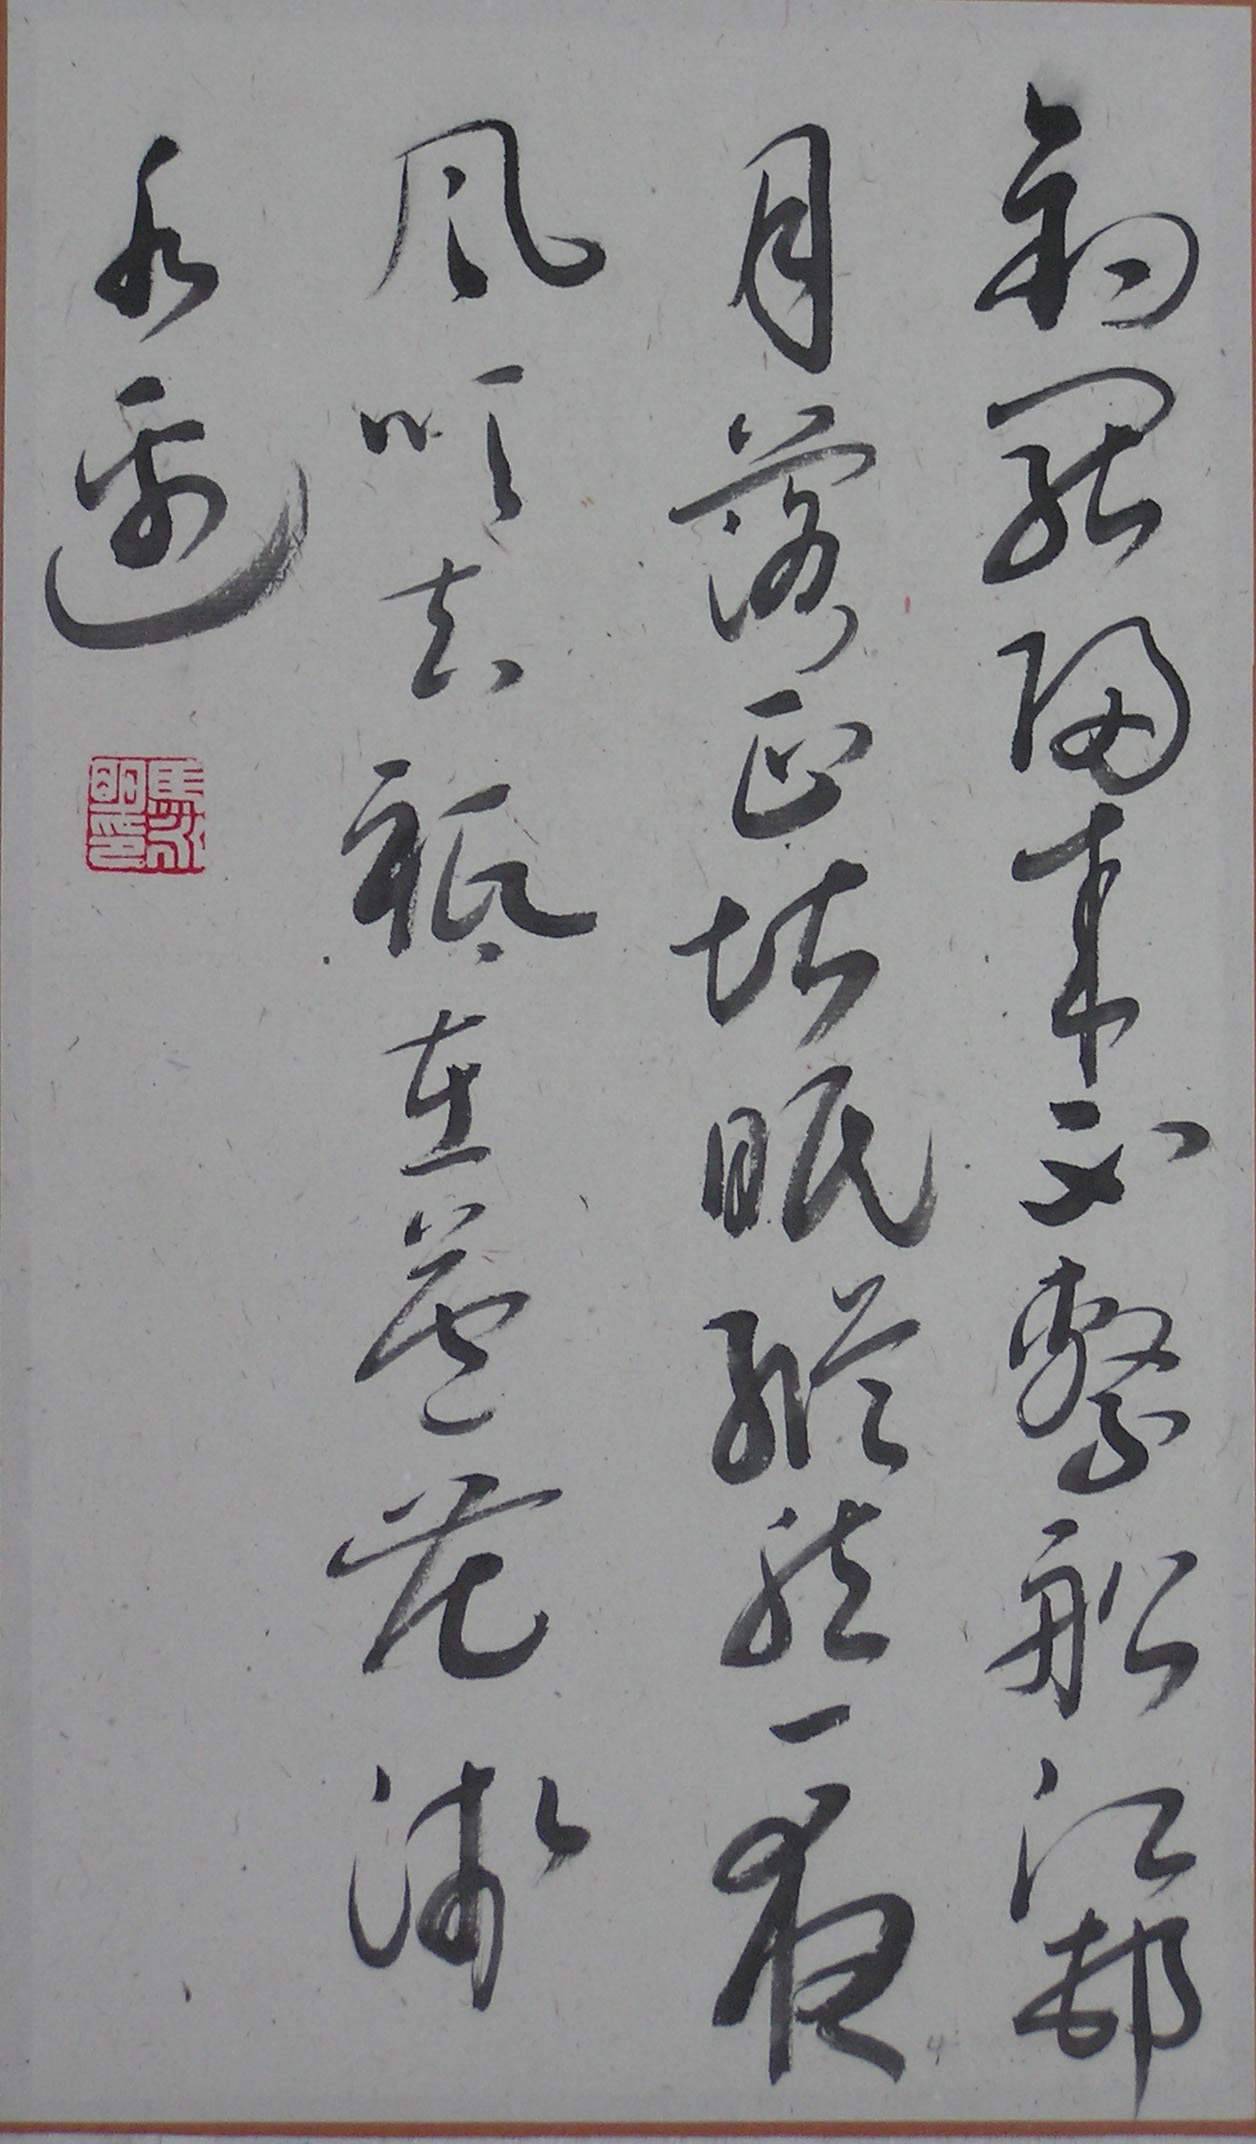 釣罷歸來不繫船江邨
月落正堪眠縱然一夜
風吹去祇在蘆花淺
水邊
馬永明印